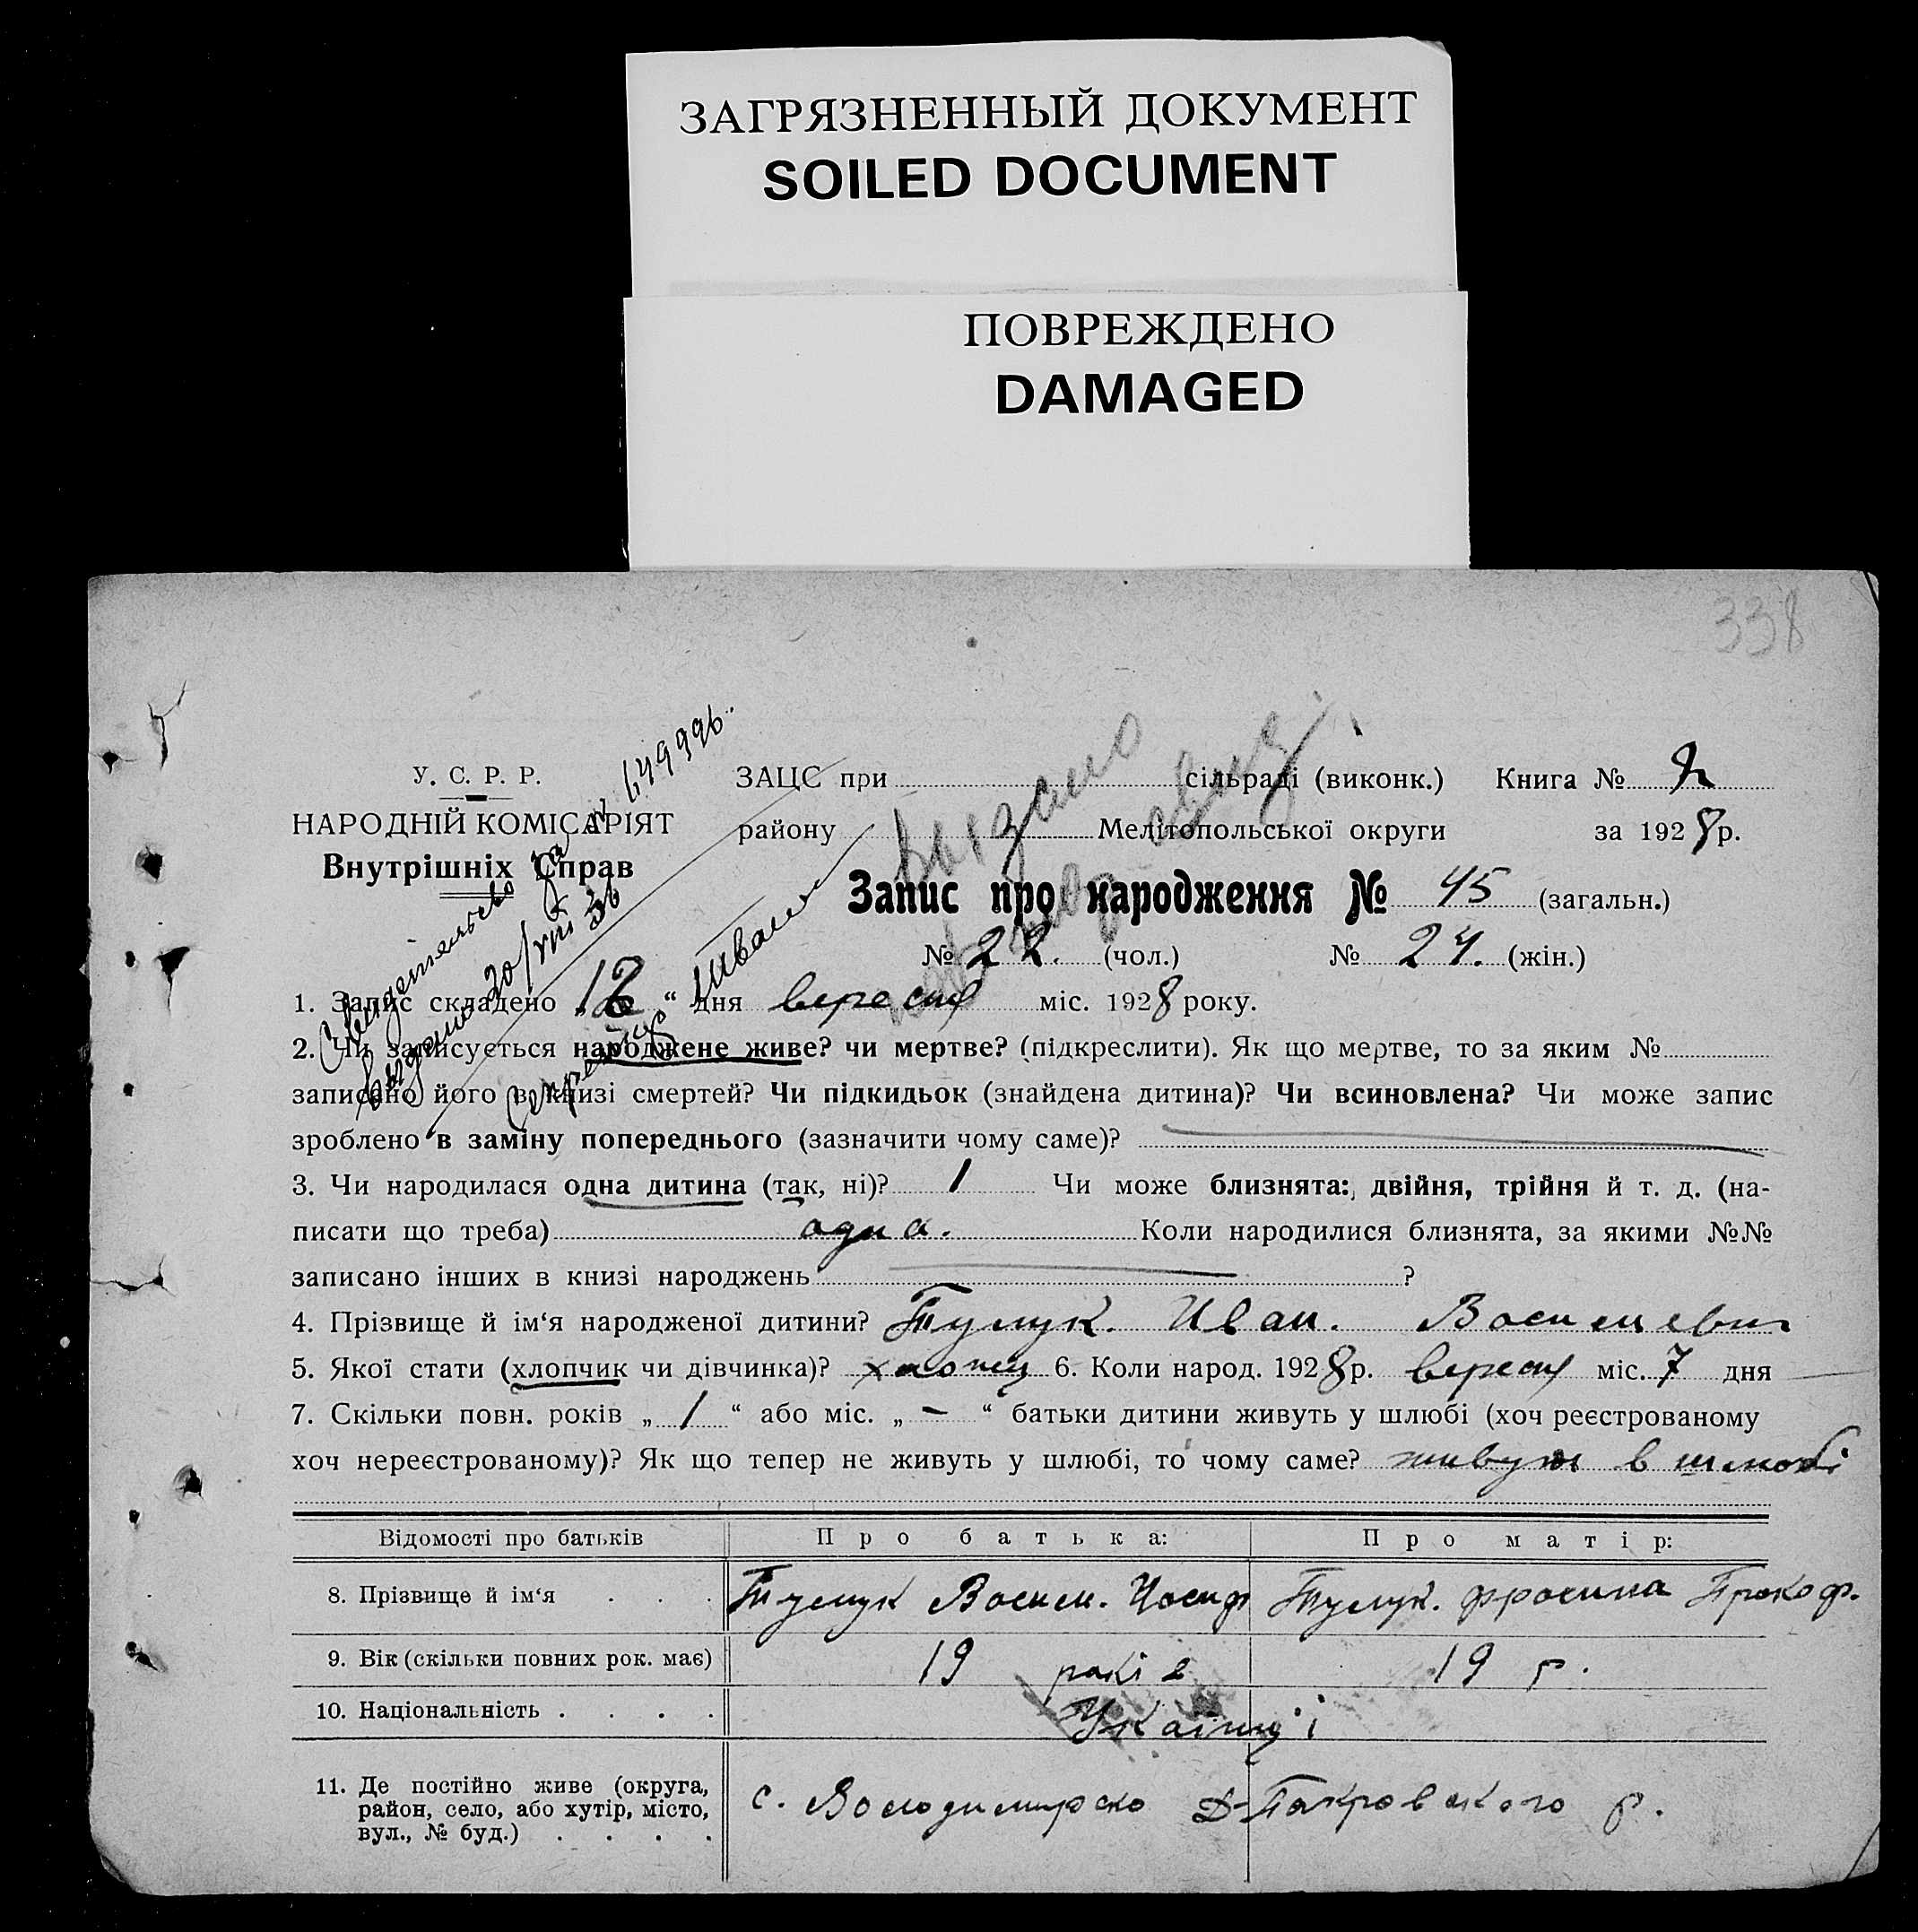 ЗАГРЯЗНЕННЫЙ ДОКУМЕНТ
SOILED DOCUMENT
ПОВРЕЖДЕНО
DAMAGED
338
У. С. Р. Р.
НАРОДНІЙ КОМІСАРІЯТ
Внутрішніх Справ
ЗАЦС при сільраді (виконк.) Книга №
району Мелітопольської округи за 1928 р.
Запис про народження № 45 (загальн.)
№ 22. (чол.) № 24. (жін.)
Свидетельство за № 649996.
выдано 20/VIII 36
Выдано
1. Запис складено „12“ дня вересня міс. 1928 року.
2. Чи записується народжене живе? чи мертве? (підкреслити). Як що мертве, то за яким №
записано його в книзі смертей? Чи підкидьок (знайдена дитина)? Чи всиновлена? Чи може запис
зроблено в заміну попереднього (зазначити чому саме)?
3. Чи народилася одна дитина (так, ні)? 1 Чи може близнята: двійня, трійня й т. д. (на-
писати що треба) одна. Коли народилися близнята, за якими №№
записано інших в книзі народжень ?
4. Прізвище й ім‘я народженої дитини? Тулук. Иван. Василевич
5. Якої стати (хлопчик чи дівчинка)? хлопец 6. Коли народ. 1928 р. вересня міс. 7 дня
7. Скільки повн. років „ 1 “ або міс. „ — “ батьки дитини живуть у шлюбі (хоч реєстрованому
хоч нереєстрованому)? Як що тепер не живуть у шлюбі, то чому саме? живуть в шлюбі
Відомості про батьків Про батька: Про матір:
8. Прізвище й ім‘я . . . Тулук Васил. Иосиф Тулук. Фросина Прокоф.
9. Вік (скільки повних рок. має) 19 рокі в 19 р.
10. Національність . . . . Украінці
11. Де постійно живе (округа,
район, село, або хутір, місто,
вул., № буд.) . . . .
с. Володимирско Д-Покровского р.